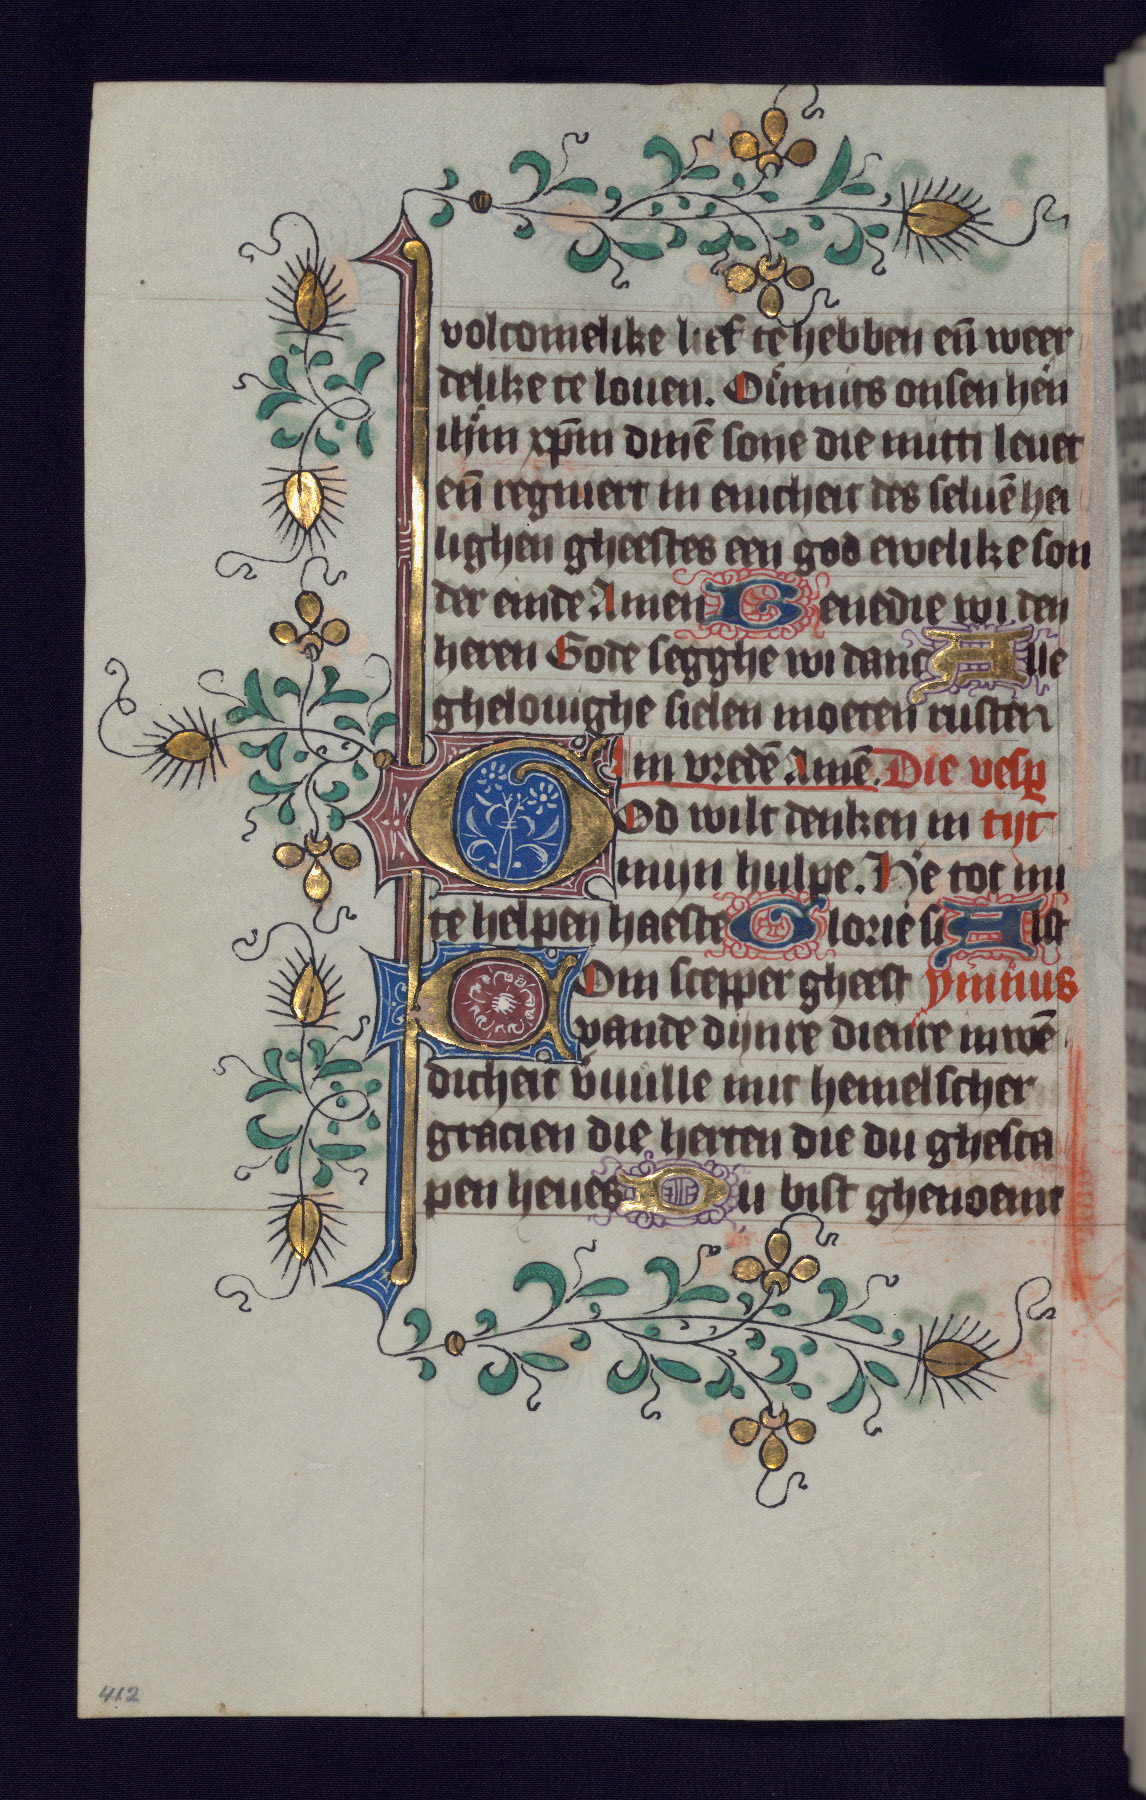 volcomelike lief te hebben en̄ weer
delike te louen. Ou᷑mits onsen he᷑n
ihm̄ xp̄m dinē sone die mitti leuet
en̄ regniert in enicheit des seluē hei
lighen gheestes een god ewelike son
der einde Amen Benedie wi den
heren Gode segghe wi danc Alle
ghelouighe sielen moeten rusten
in vredē Amē. Die vesp
God wilt denken in tijt
mijn hulpe. He᷑ tot mi
te helpen haeste Glorie si Alst
Com scepper gheest ymnus
vande dijnre dienre inwē
dicheit v᷑uulle mit hemelscher
gracien die herten die du ghesca
pen heues Du bist ghenoemt
412